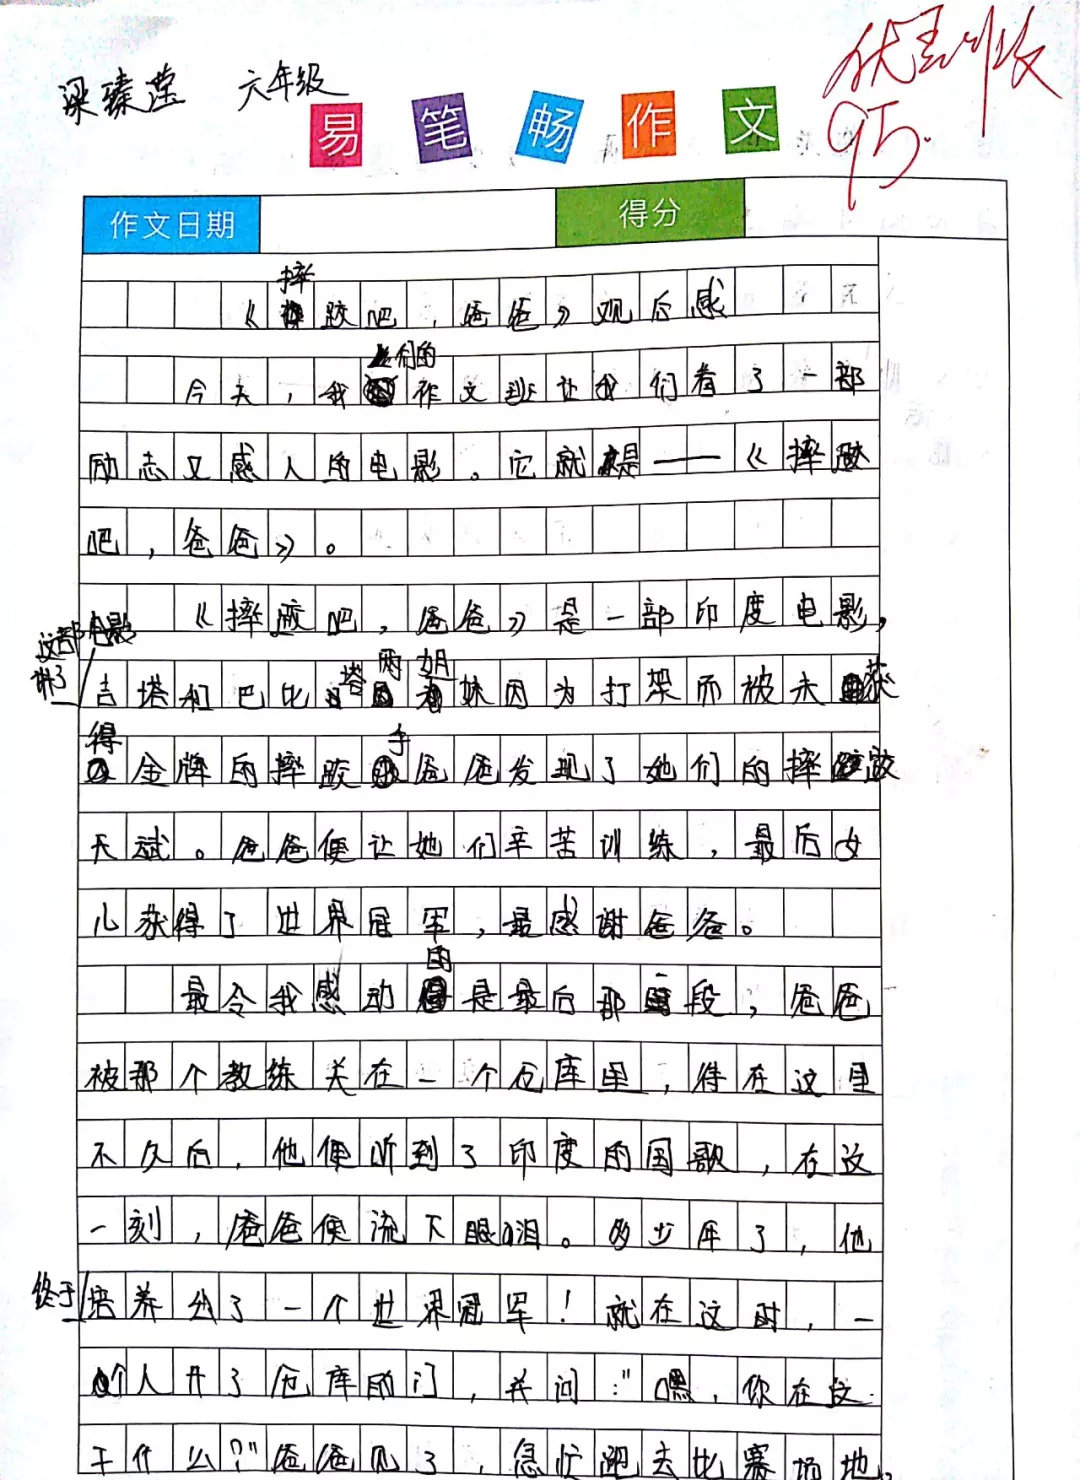 梁臻滢 六年级
95.
易笔畅作文
作文日期 得分
《摔跤吧，爸爸》观后感
今天，我们的作文班让我们看了一部
励志又感人的电影。它就是——《摔跤
吧，爸爸》。
《摔跤吧，爸爸》是一部印度电影，
这部电影讲了吉塔和巴比塔两姐妹因为打架而被未获
得金牌的摔跤手爸爸发现了她们的摔跤
天斌。爸爸便让她们辛苦训练，最后女
儿获得了世界冠军，最感谢爸爸。
最令我感动的是最后那一段，爸爸
被那个教练关在一个仓库里，待在这里
不久后，他便听到了印度的国歌，在这
一刻，爸爸便流下眼泪。多少年了，他
终于培养出了一个世界冠军！就在这时，一
个人开了仓库的门，并问："嘿，你在这
干什么？"爸爸见了，急忙跑去比赛场地。